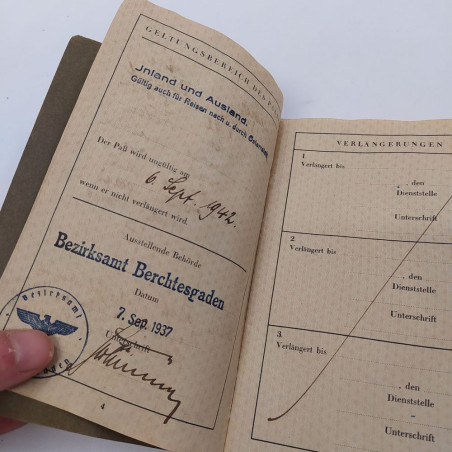 GELTUNGSBEREICH DES
Inland und Ausland.
Gültig auch für Reisen nach u. durch Österreich
Der Paß wird ungültig am
6. Sept. 1942
wenn er nicht verlängert wird.
Ausstellende Behörde
Bezirksamt Berchtesgaden
Datum
7. Sep. 1937
Unterschrift
Bezirksamt
4
VERLÄNGERUNGEN
1.
Verlängert bis
, den
Dienststelle
Unterschrift
2.
Verlängert bis
, den
Dienststelle
Unterschrift
3.
Verlängert bis
, den
Dienststelle
Unterschrift